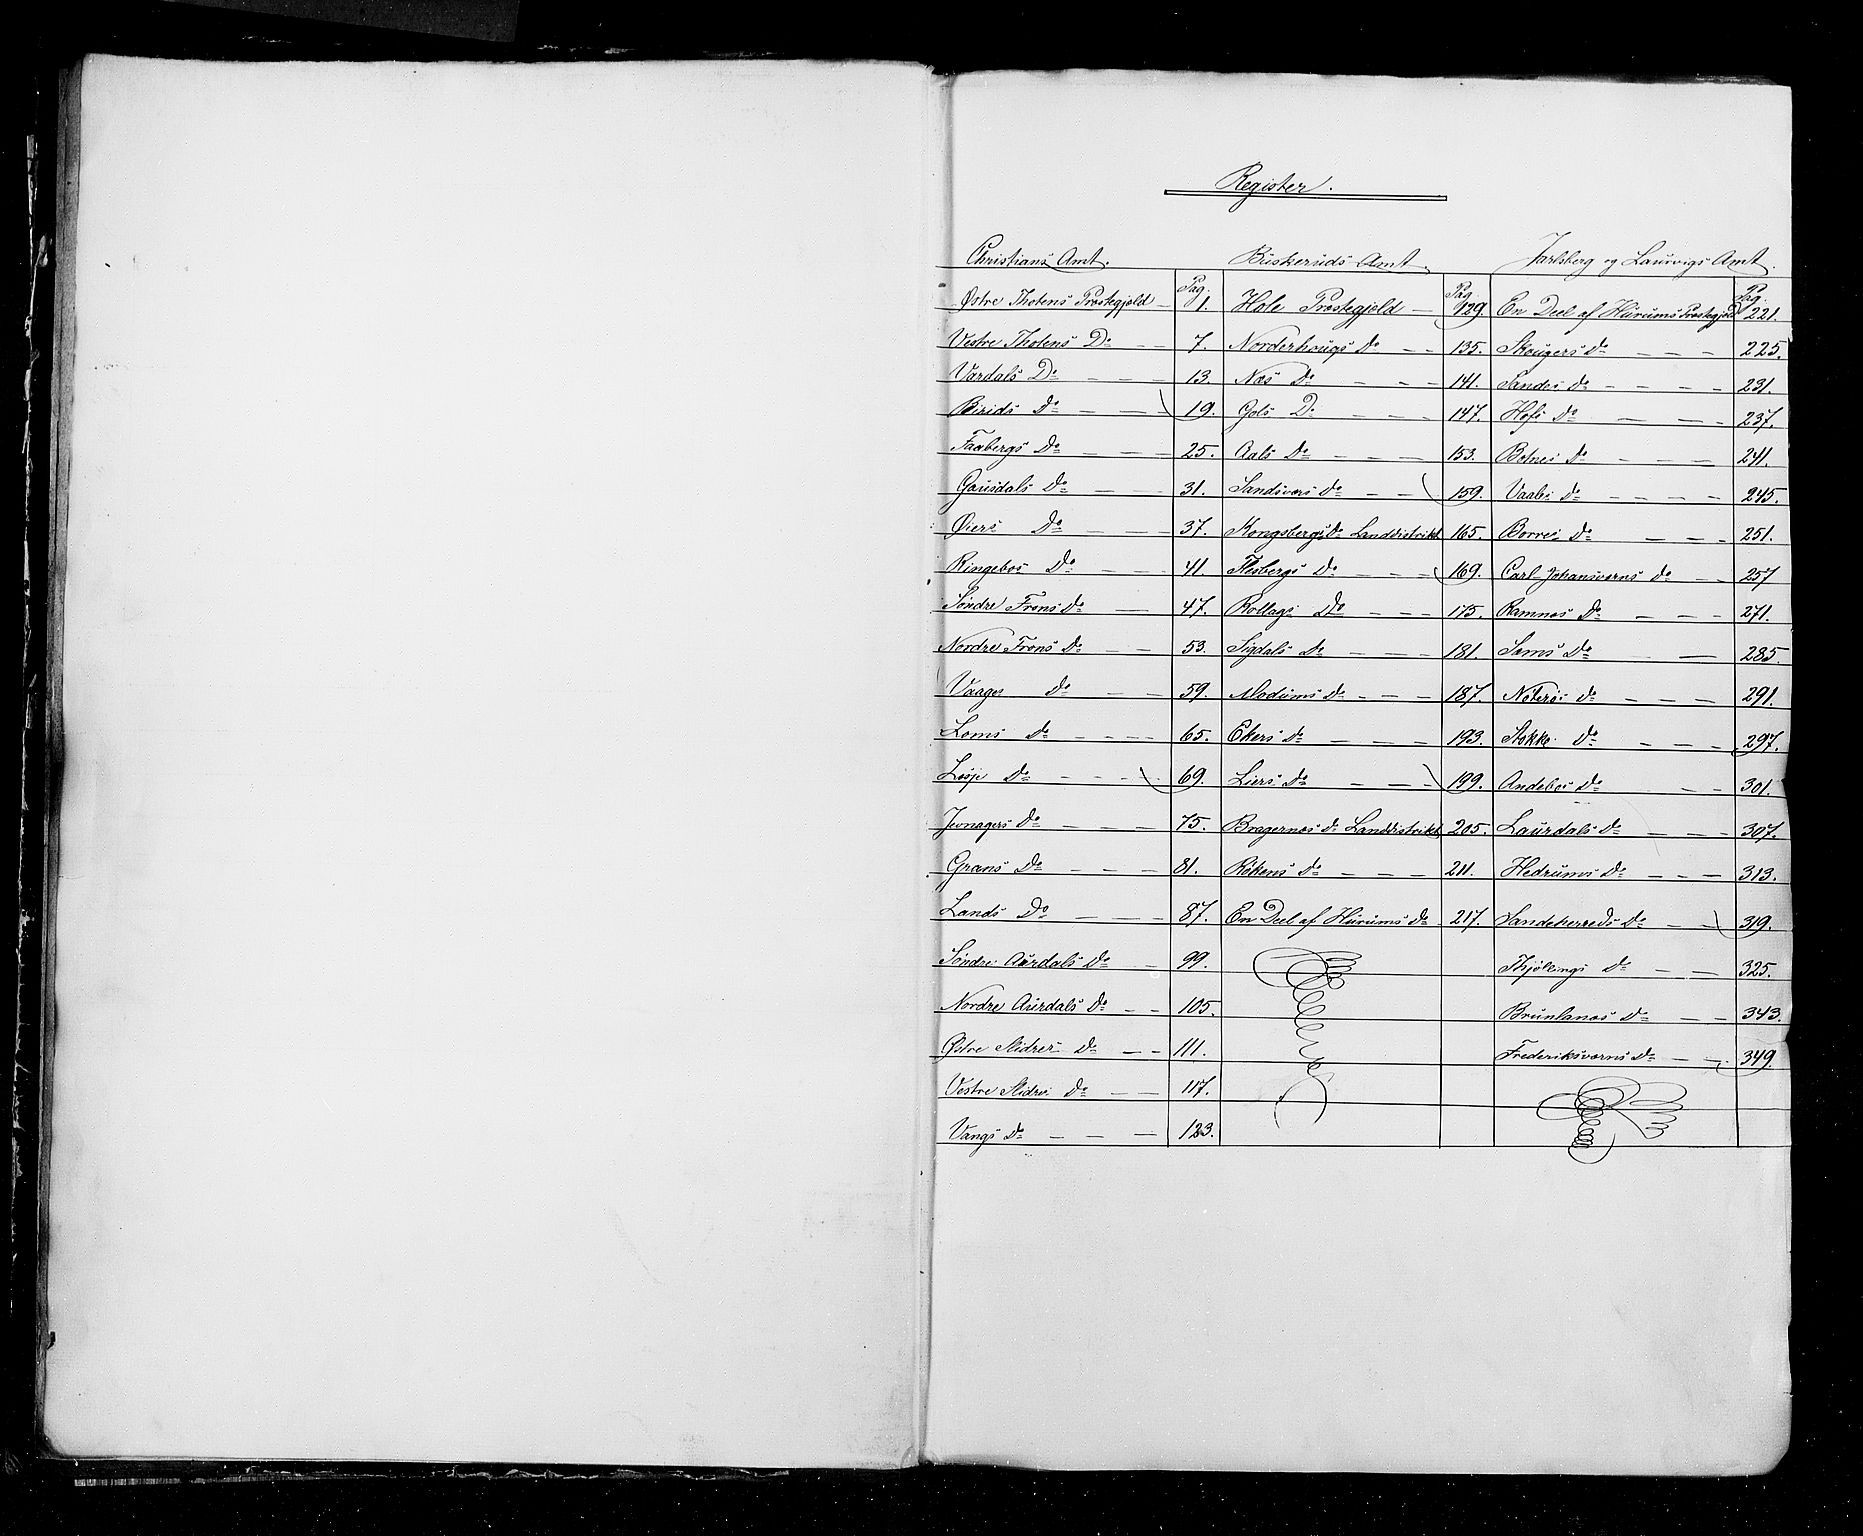 Register.
Christians Amt. Buskeruds Amt. Jarlsberg og Laurvigs Amt.
Pag. Pag. Pag.
Østre Thotens Præstegjeld — 1. Hole Præstegjeld — 129 En Deel af Hurums Præstegjeld 221.
Vestre Thotens Do — — 7. Norderhougs do — — 135. Skougers do — — — 225.
Vardals Do — — — 13. Næs do — — — 141. Sandes do — — — — 231.
Birids do — — — 19. Gols Do — — — 147. Hofs do — — — 237.
Faabergs do — — — 25. Aals do — — — 153. Botnes do — — — 241.
Gausdals do — — — 31. Sandsværs do — — 159. Vaales do — — — — 245.
Øiers do — — — 37. Kongsbergs do Landdistrikt 165. Borres do — — — 251.
Ringeboes do — — — 41. Flesbergs do — — — 169. Carl-Johansværns do — — 257
Søndre Frons do — — 47. Rollags do — — — 175. Ramnæs do — — — 271.
Nordre Frons do — — 53. Sigdals do — — — 181. Sems do — — 285.
Vaages do — — 59. Modums do — — — 187. Nøterøs do — — — 291.
Loms do — — — 65. Ekers do — — — 193. Stokke do — — — 297.
Lesje do — — — — 69. Liers do — — — 199. Andeboes do — — 301.
Jevnagers do — — — 75. Bragernæs do Landdistrikt 205. Laurdals do — — — 307.
Grans do — — — 81. Rökens do — — — 211. Hedrums do — — — 313.
Lands do — — — 87. En Deel af Hurums do 217. Sandeherreds do — — 319.
Søndre Aurdals do — 99. Thjøllings do — — 325.
Nordre Aurdals do — — 105. Brunlanæs do — — 343.
Østre Slidres do — — 111. Frederiksværns do — — 349.
Vestre Slidres do — — 117.
Vangs do — — — 123.